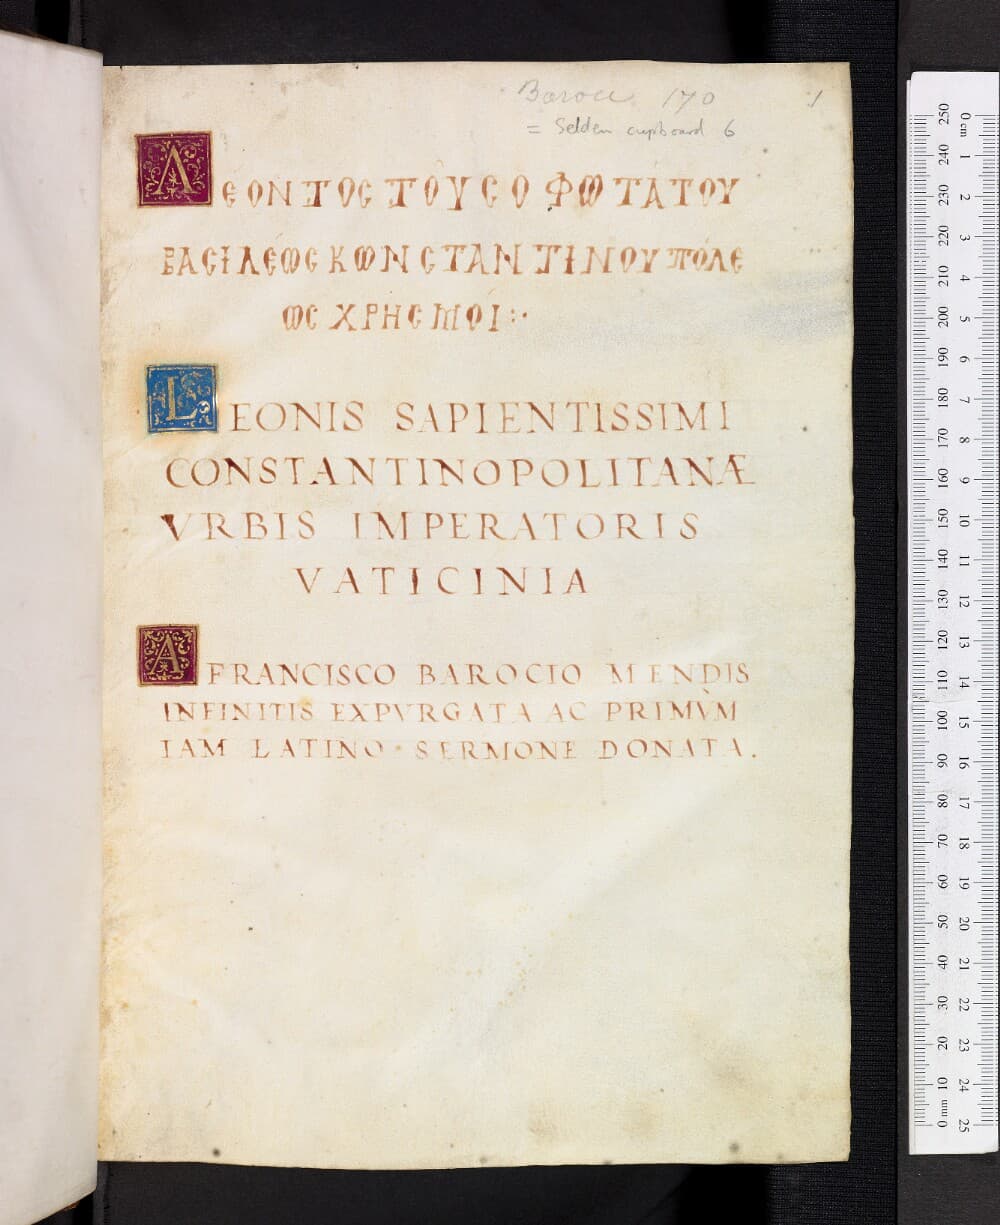 Barocc. 170
1
= Selden cupboard 6
ΛΕΟΝΤΟC ΤΟῦ CΟΦΩΤΆΤΟΥ
ΒΑCΙΛΈΩC ΚΩΝCΤΑΝΤΙΝΟΥΠΌΛΕ
ΩC ΧΡΗCΜΟΊ :·
LEONIS SAPIENTISSIMI
CONSTANTINOPOLITANÆ
VRBIS IMPERATORIS
VATICINIA
A FRANCISCO BAROCIO MENDIS
INFINITIS EXPVRGATA AC PRIMV̀M
IAM LATINO · SERMONE DONATA .
0 cm 1 2 3 4 5 6 7 8 9 10 11 12 13 14 15 16 17 18 19 20 21 22 23 24 25
250 240 230 220 210 200 190 180 170 160 150 140 130 120 110 100 90 80 70 60 50 40 30 20 10 mm 0